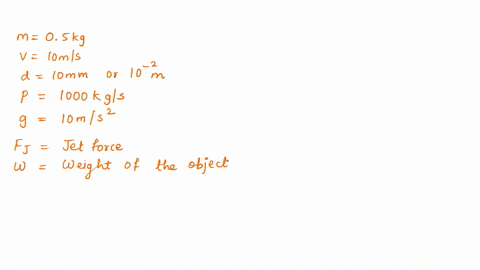 m = 0.5 kg
V = 10m/s
d = 10mm or 10⁻² m
P = 1000 kg/s
g = 10m/s²
FJ = Jet force
W = Weight of the object